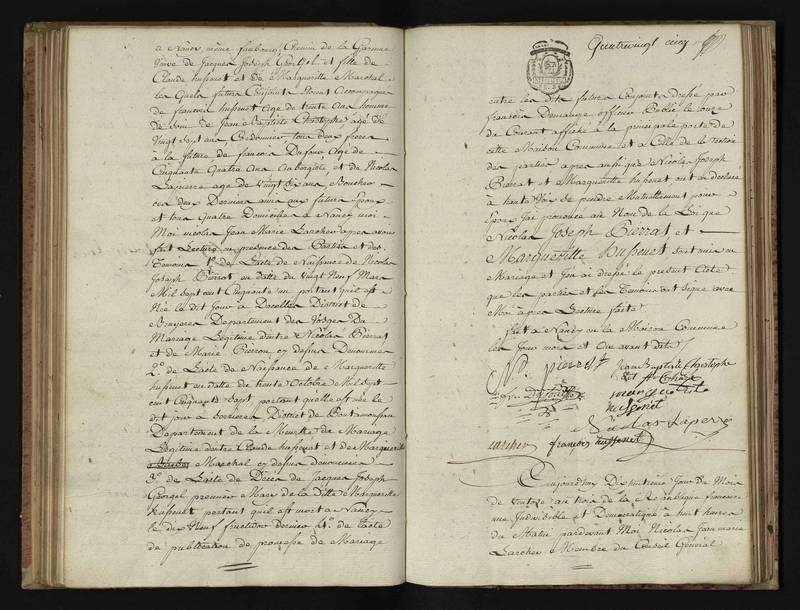 a Nancy même faubourg Chemin de la Garenne
Veuve de Jacques Joseph George et fille de
Claude hussenet et de Marguerite Marchal
les quels futurs Conjoints étoient accompagnés
de françois hussenet agé de trente ans homme
de Loix de Jean Baptiste Christophe agé de
Vingt Sept ans, Cordonnier tous deux freres
à la future de francois Dufour, agé de
Cinquante Quatre ans aubergiste et de Nicolas
Lapierre agé de Vingt Six ans Boucher
ces deux Derniers amis aux futurs Epoux
et tous Quatre Domiciliés a Nancy moi
Moi nicolas Jean Marie Larcher apres avoir
fait Lecture en presence des Parties et des
Temoins 1o de L'acte de Naissance de Nicolas
Joseph Pierrat en datte du Vingt Neuf Mars
Mil Sept cent Cinquante un portant qu'il est
Né le dit Jour a Docelles District de
Bruyeres Departement des Vosges Du
Mariage Légitime d'entre Nicolas Pierrat
et de Marie Pierron cy dessus Denommés
2o de L'acte de Naissance de Marguerite
hussenet en datte du trente Octobre Mil Sept
cent Cinquante Sept, portant qu'elle est née le
dit Jour a District de Pontamousson
Departement de la Meurthe de Mariage
Légitime d'entre Claude hussenet et de Marguerite
Marchal cy dessus denommés
3o de L'acte de Décès de Jacques Joseph
George, premier Mary de la Ditte Marguerite
hussenet portant qu'il est mort a Nancy
le dix Neuf fructidor Dernier 4o de l'acte
de publication de promesse de Mariage
Quatrevingt cinq
entre les dits futurs Conjoints dressé par
francois Demange officier Public le onze
du Courant affiché a la principale porte de
cette Maison Commune et a Celle de la Section
des parties apres aussi que Nicolas Joseph
Pierrat et Marguerite hussenet ont eu declaré
à haute Voix se prendre Mutuellement pour
Epoux J'ai prononcé au Nom de la Loi que
Nicolas Joseph Pierrat et
Marguerite Hussenet sont unis en
Mariage et J'en ai dressé le present Acte
que les parties et les Temoins ont signé avec
Moi apres Lecture faite
fait a Nancy en la Maison Commune
les Jour mois et an avant dits
N. pierrat
Jean Baptiste Christophe
marguerite
hussenet
Nicolas Lapierre
Larcher françois hussenet
Aujourd'huy Dix huitieme Jour du Mois
de Ventose an trois de la République francaise
une Indivisible et Democratique à huit heures
du Matin pardevant Moi Nicolas Jean marie
Larcher Membre du Conseil Général